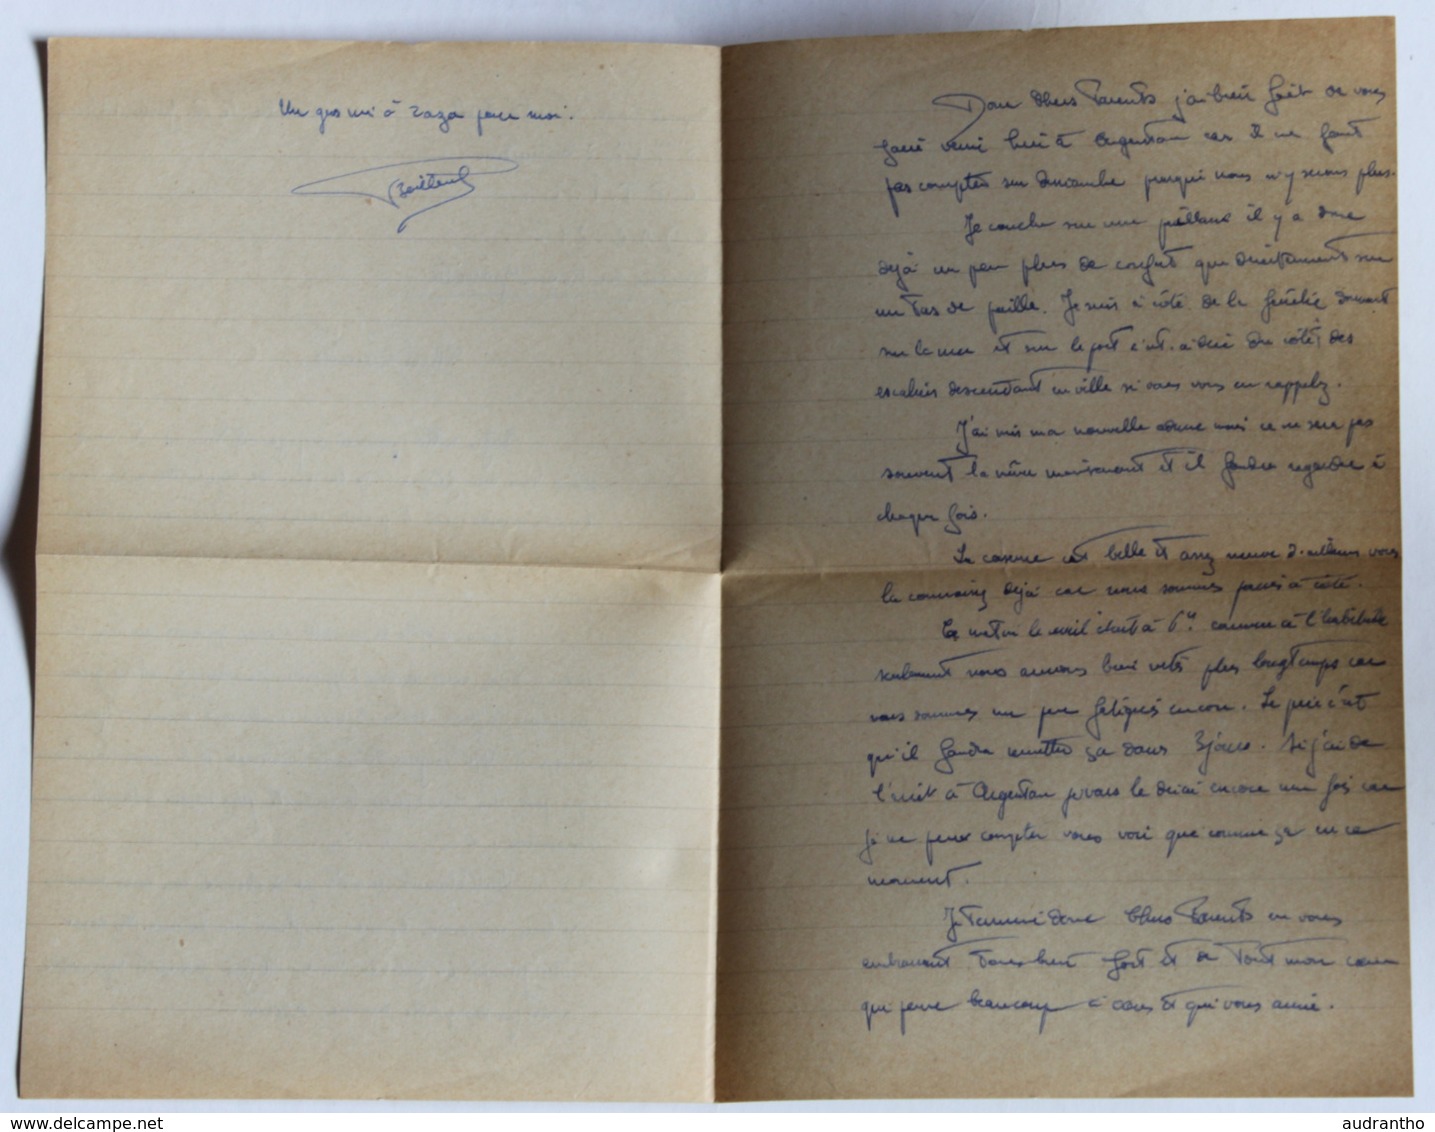 Un gros mimi à Zaza pour moi.
Donc Chers Parents j'ai bien fait de vous
faire venir hier à Argentan car il ne faut
pas compter sur Dimanche puisque nous n'y serons plus.
Je couche sur une paillasse il y a donc
déjà un peu plus de confort que directement sur
un tas de paille. Je suis à côté de la fenêtre donnant
sur la mer et sur le port c'est-à-dire du côté des
escaliers descendant en ville si vous vous en rappelez.
J'ai mis ma nouvelle adresse mais ce ne sera pas
souvent la même maintenant et il faudra regarder à
chaque fois.
La caserne est belle et assez neuve d'ailleurs vous
la connaissez déjà car nous sommes passés à côté.
Ce matin le réveil était à 6h comme à l'habitude
seulement nous serions bien restés plus longtemps car
nous sommes un peu fatigués encore. Le pire c'est
qu'il faudra remettre ça dans 3 jours. Si j'ai de
l'arrêt à Argentan je vous le dirai encore une fois car
je ne peux compter vous voir que comme ça en ce
moment.
Je termine donc Chers Parents en vous
embrassant tous bien fort et de tout mon cœur
qui pense beaucoup à vous et qui vous aime.
audrantho
delcampe.net